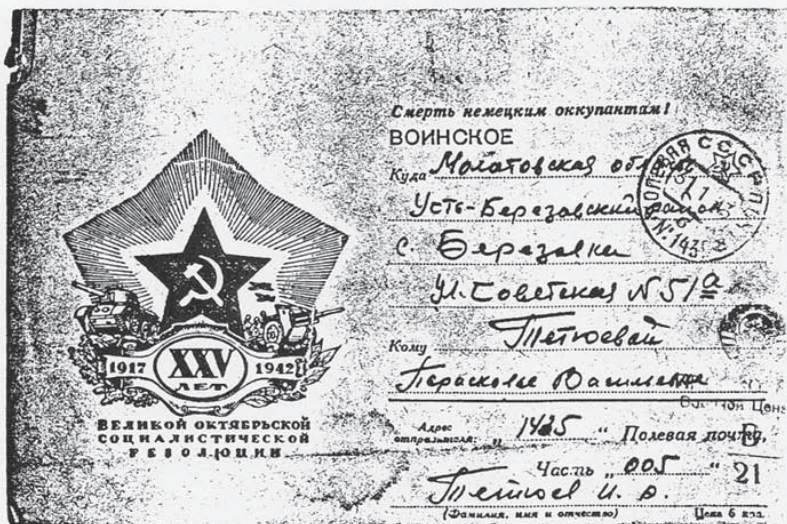 Смерть немецким оккупантам!
ВОИНСКОЕ
Куда Молотовская область
Усть-Березовский район
с. Березовки
Ул. Советская № 51а
Кому Тетюевой
Парасковье Васильевне
Адрес отправителя „ 1425 “ Полевая почта,
Часть „ 005 “
Тетюев И.
(Фамилия, имя и отчество) Цена 6 коп.
1917 XXV ЛЕТ 1942
ВЕЛИКОЙ ОКТЯБРЬСКОЙ
СОЦИАЛИСТИЧЕСКОЙ
РЕВОЛЮЦИИ
СССР
ПОЛЕВАЯ
21